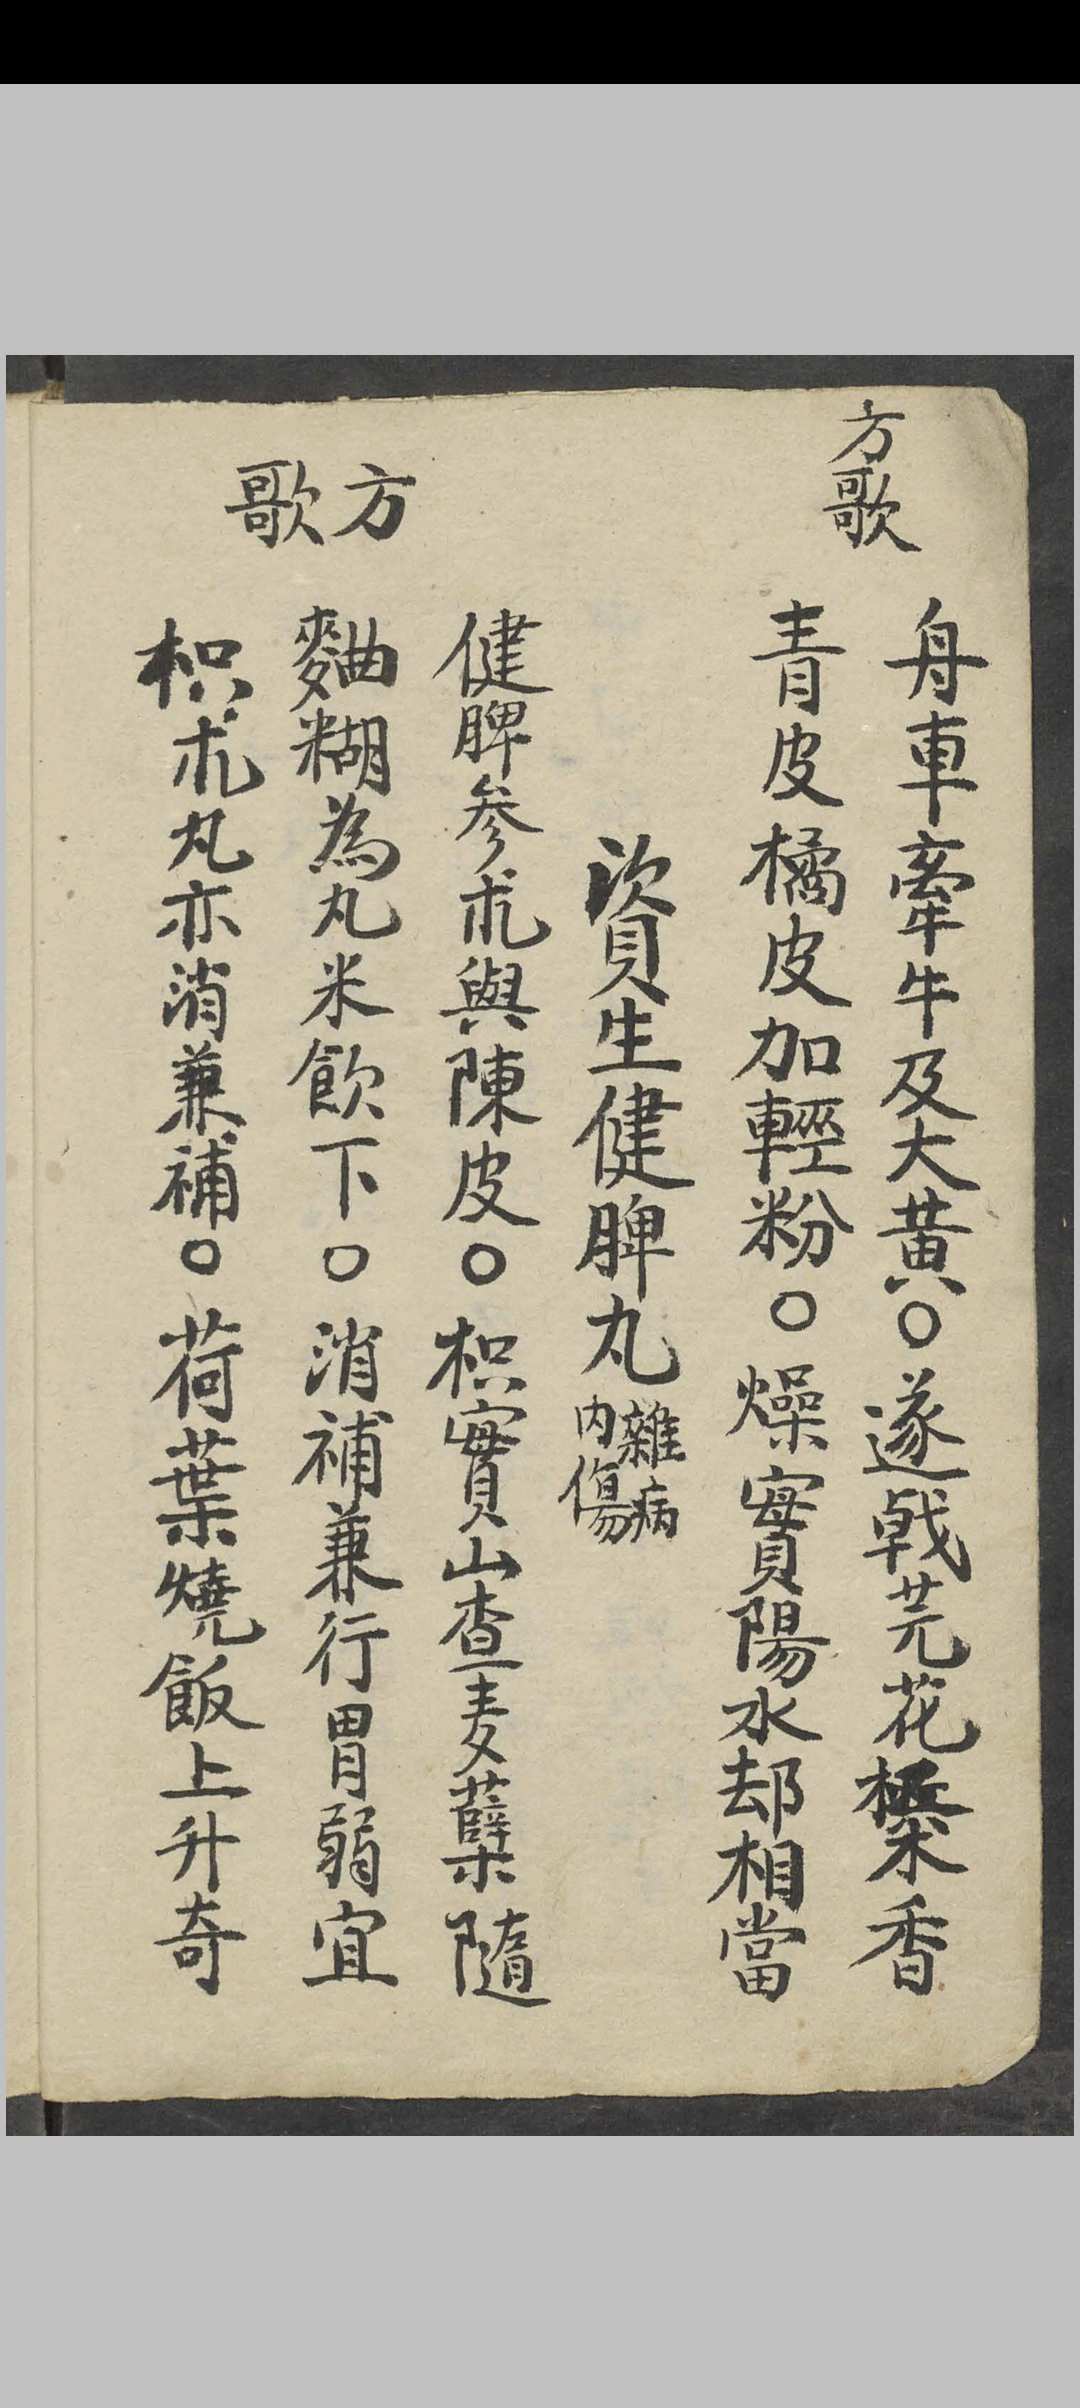 方歌
舟車牽牛及大黃○遂戟芫花檗木香
青皮橘皮加輕粉○燥實陽水却相當
資生健脾丸 雜病內傷
方歌
健脾參朮與陳皮○枳實山查麦蘖隨
麯糊為丸米飲下○消補兼行胃弱宜
枳朮丸亦消兼補○荷葉燒飯上升奇